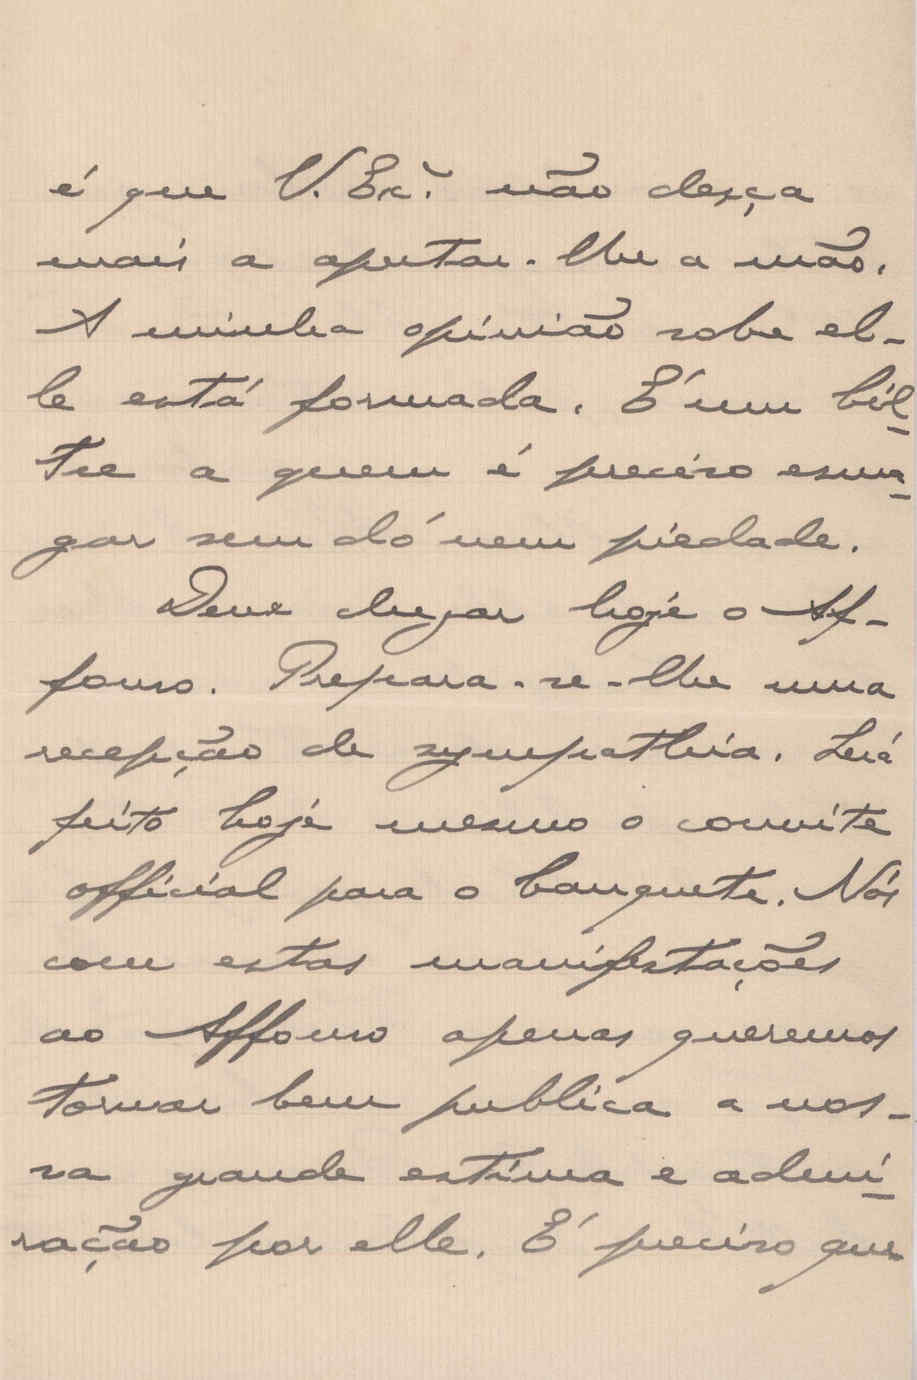 é que V. Exª. não desça
mais a apertar-lhe a mão.
A minha opinião sobre el-
le está formada. É um bil-
tre a quem é preciso esma-
gar sem dó nem piedade.
Deve chegar hoje o Af-
fonso. Prepara-se-lhe uma
recepção de sympathia. Será
feito hoje mesmo o convite
official para o banquete. Nós
com estas manifestações
ao Affonso apenas queremos
tornar bem publica a nos-
sa grande estima e admi-
ração por elle. É preciso que